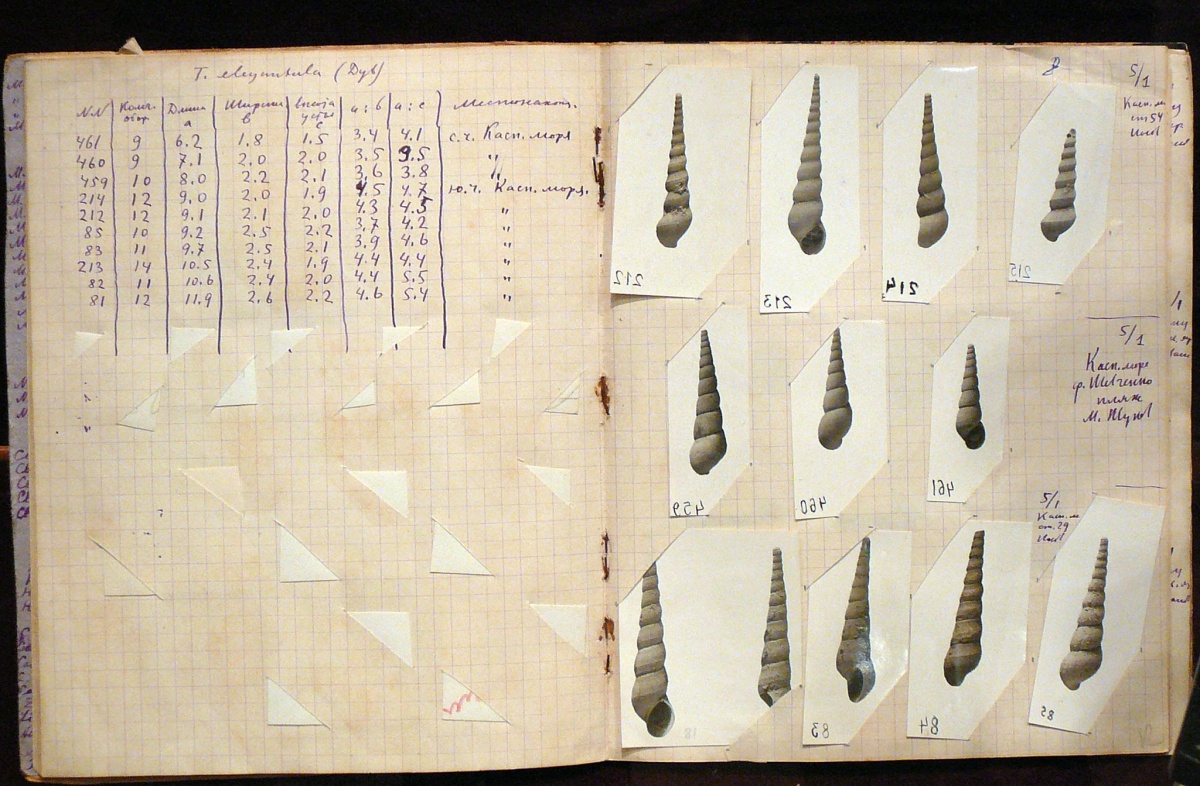 T. elegantula (Dyb)
NN Колич. обор. Длина a Ширина b Высота устья c a:b a:c Местонахожд.
461 9 6.2 1.8 1.5 3.4 4.1 с.ч. Касп. моря
460 9 7.1 2.0 2.0 3.5 3.5 "
459 10 8.0 2.2 2.1 3.6 3.8 "
214 12 9.0 2.0 1.9 4.5 4.7 ю.ч. Касп. моря.
212 12 9.1 2.1 2.0 4.3 4.5 "
85 10 9.2 2.5 2.2 3.7 4.2 "
83 11 9.7 2.5 2.1 3.9 4.6 "
213 14 10.5 2.4 1.9 4.4 4.4 "
82 11 10.6 2.4 2.0 4.4 5.5 "
81 12 11.9 2.6 2.2 4.6 5.4 "
5/1
Касп. м
ст 54
212
213
214
215
5/1
Касп. море
ф. Шевченко
пляж
459
460
461
5/1
Касп. м
ст. 29
81
83
84
85